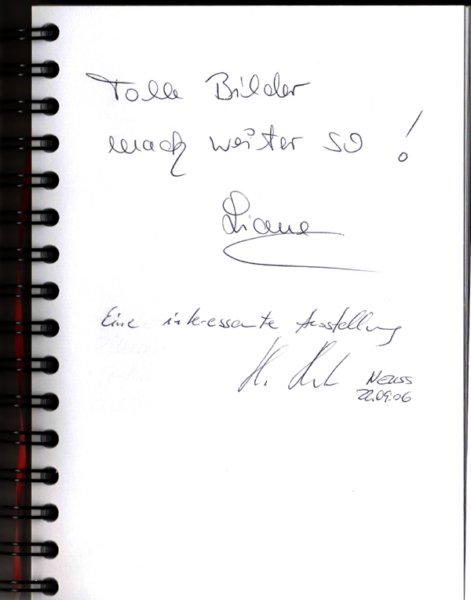 Tolle Bilder
mach weiter so !
Liane
Eine interessante Ausstellung
H.
Neuss
22.09.06